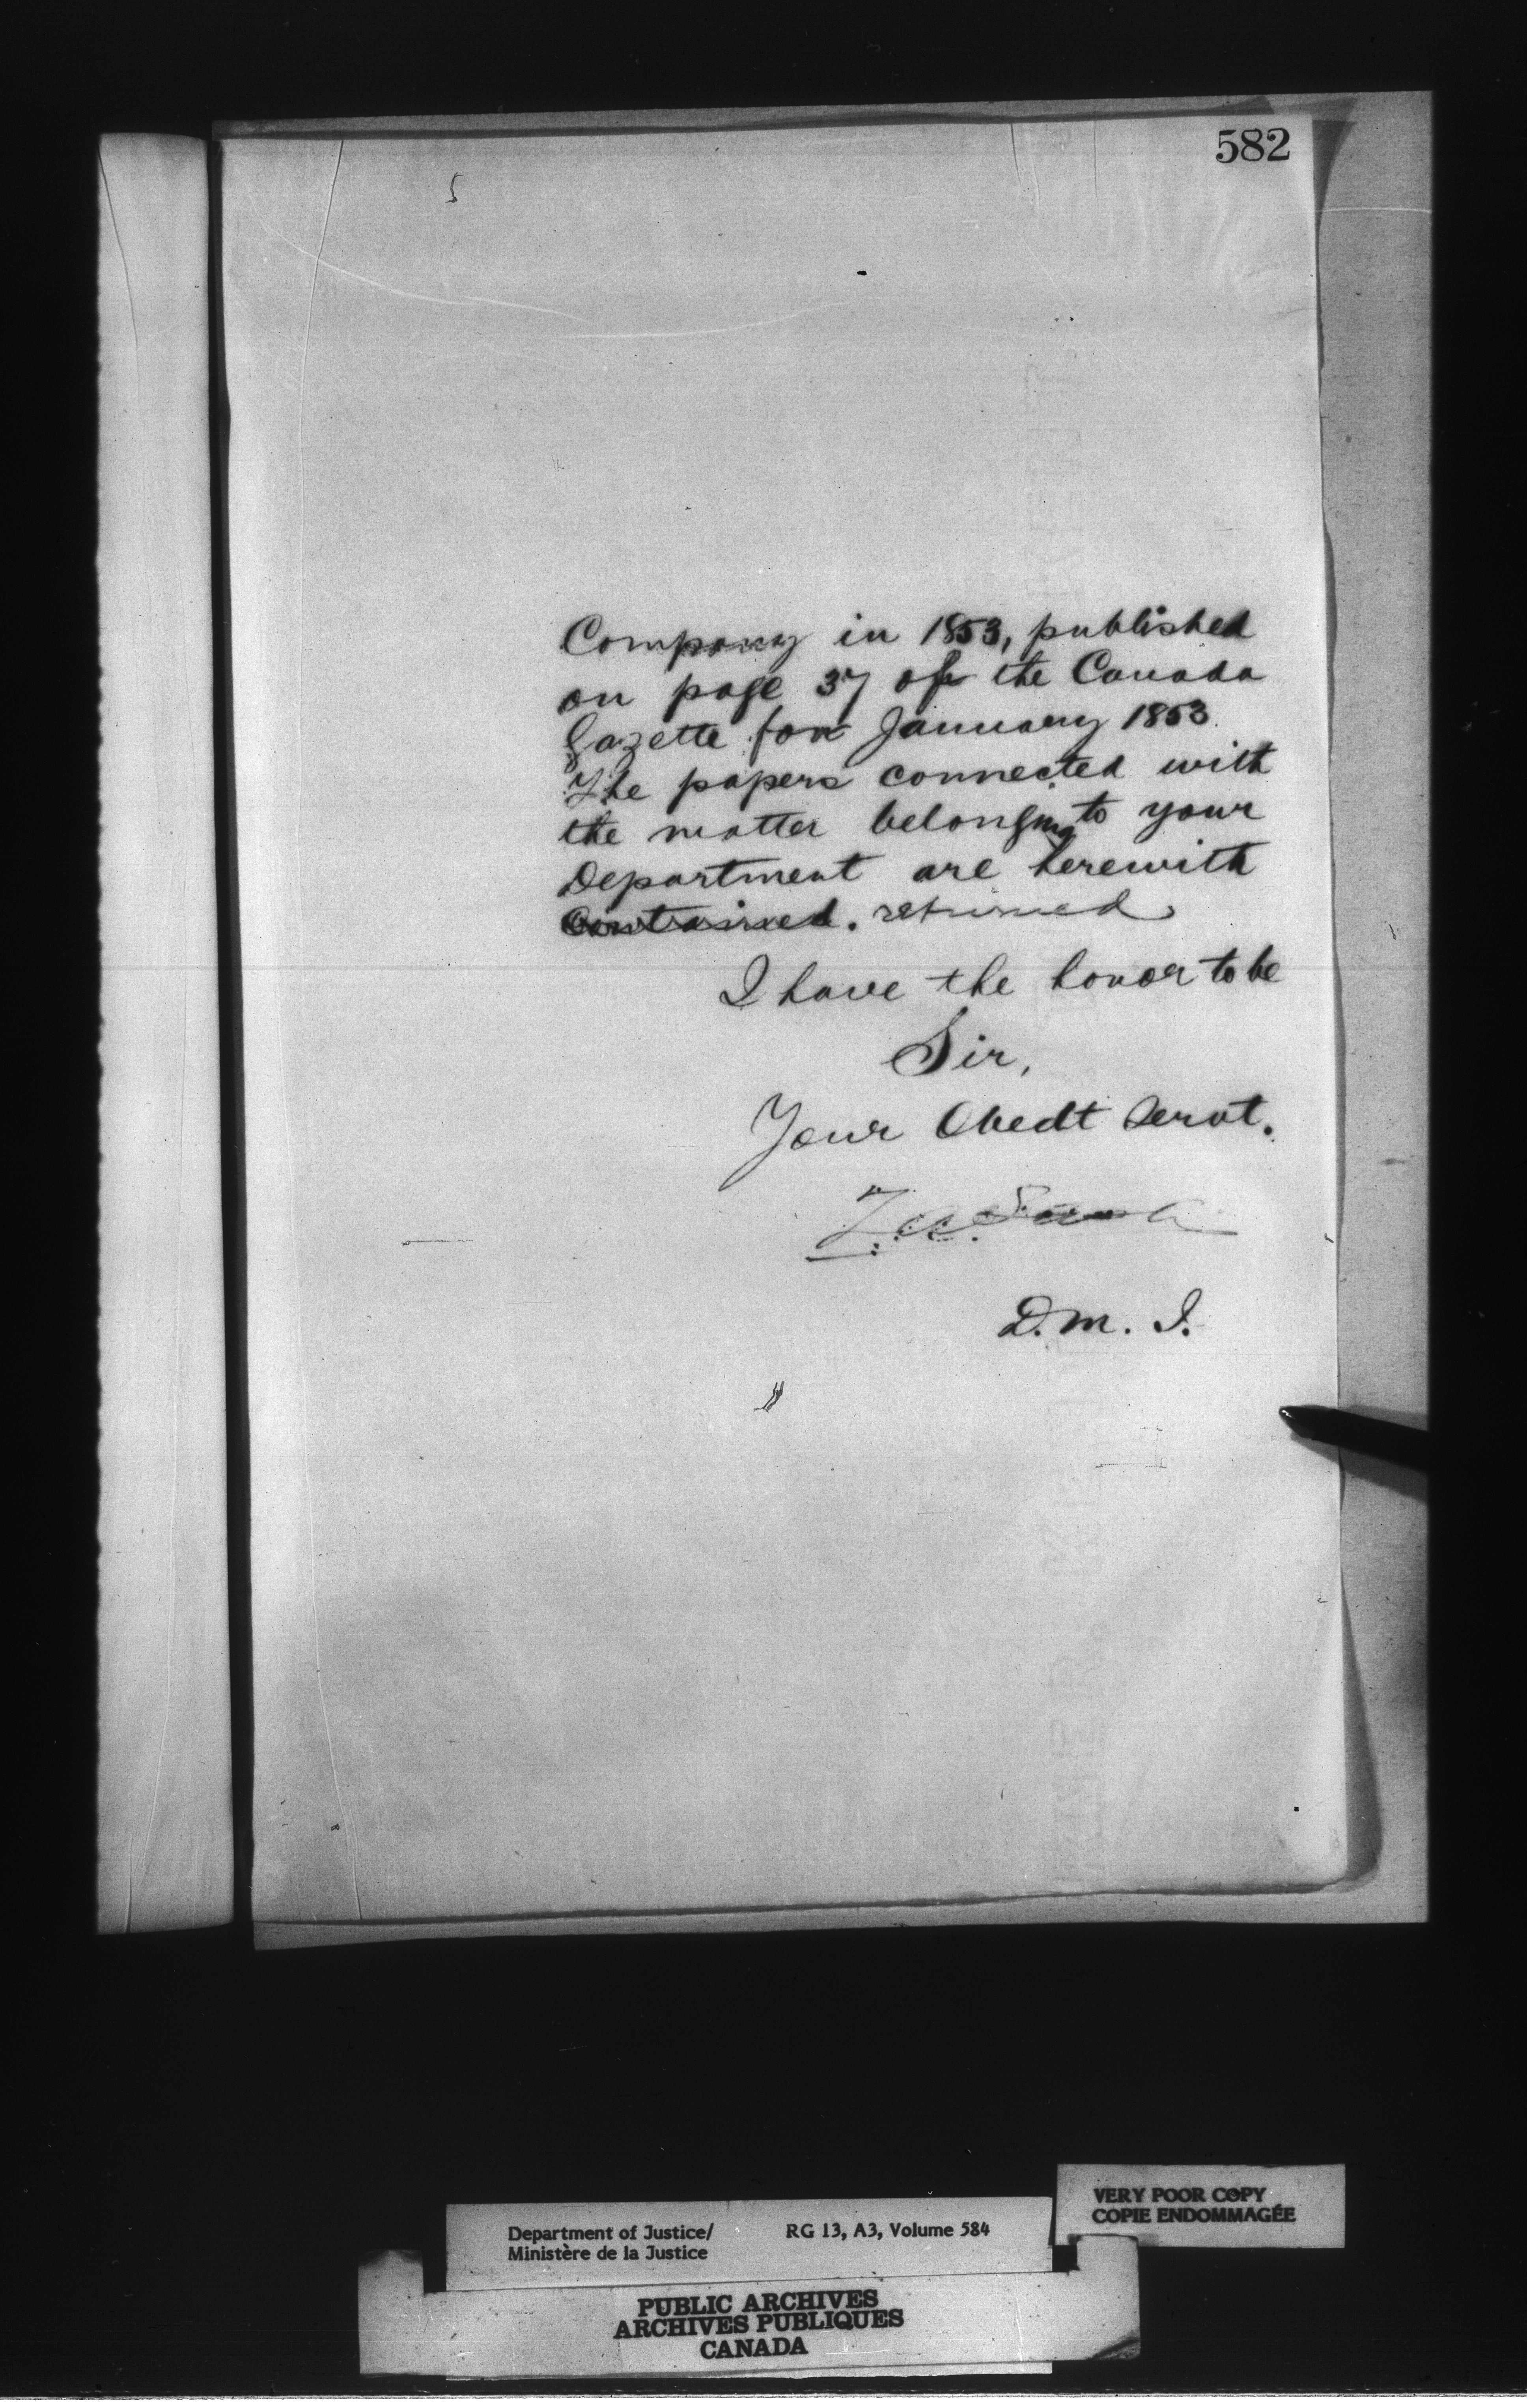 582
Company in 1853, published
on page 37 of the Canada
Gazette for January 1853.
The papers connected with
the matter belonging to your
Department are herewith
Contained. returned
I have the honor to be
Sir,
Your Obedt Servt.
D. M. J.
Department of Justice/ RG 13, A3, Volume 584
Ministère de la Justice
VERY POOR COPY
COPIE ENDOMMAGÉE
PUBLIC ARCHIVES
ARCHIVES PUBLIQUES
CANADA